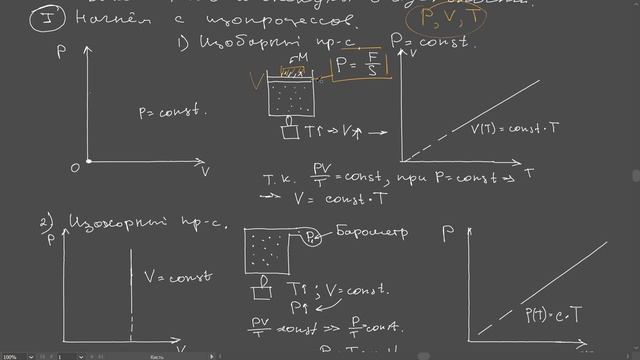 I Начнём с изопроцессов. P, V, T
1) Изобарный пр-с. P = const.
P
P = const.
O
V
M
V
P = F/S
T↑ → V↑ →
V
V(T) = const · T
T
Т.к. PV/T = const, при P = const ⇒
→ V = const · T
2) Изохорный пр-с.
P
V = const
V
P₁
Барометр
T↑ ; V = const.
P↑
PV/T = const ⇒ P/T = const.
P
P(T) = c · T
100%
1
Кисть